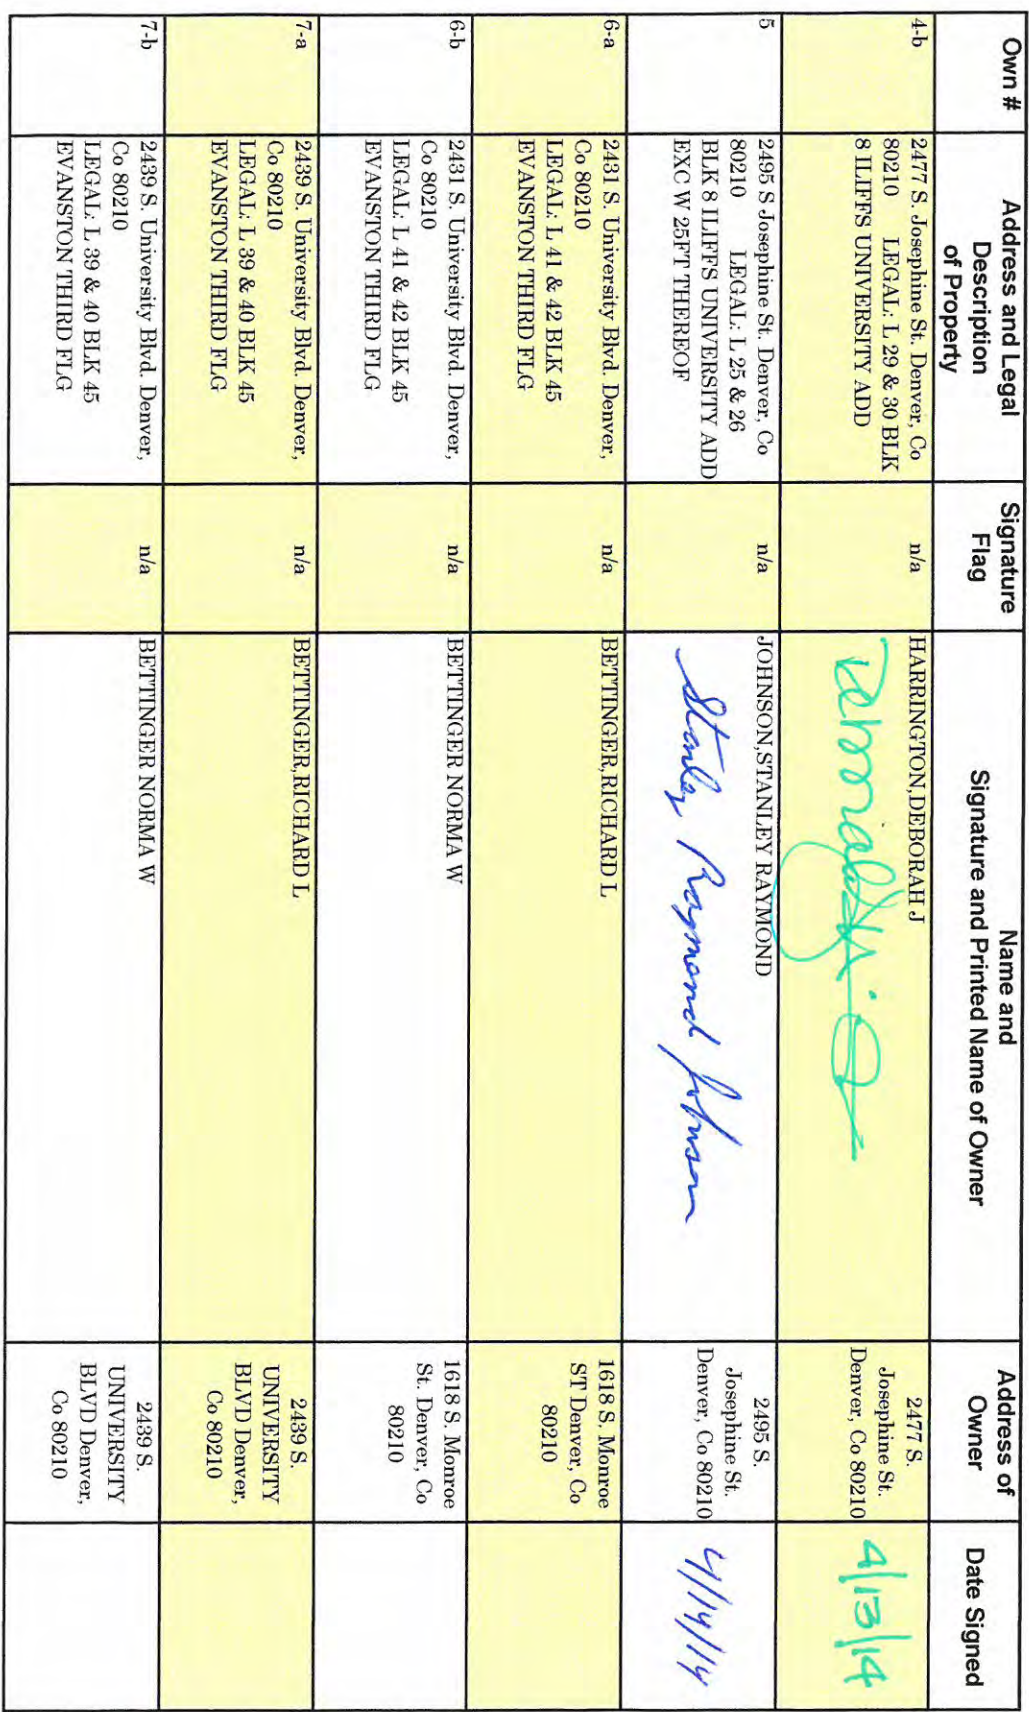 Own #
Address and Legal
Description
of Property
Signature
Flag
Name and
Signature and Printed Name of Owner
Address of
Owner
Date Signed
4-b
2477 S. Josephine St. Denver, Co
80210 LEGAL: L 29 & 30 BLK
8 ILIFFS UNIVERSITY ADD
n/a
HARRINGTON,DEBORAH J
2477 S.
Josephine St.
Denver, Co 80210
4/13/14
5
2495 S Josephine St. Denver, Co
80210 LEGAL: L 25 & 26
BLK 8 ILIFFS UNIVERSITY ADD
EXC W 25FT THEREOF
n/a
JOHNSON,STANLEY RAYMOND
Stanley Raymond Johnson
2495 S.
Josephine St.
Denver, Co 80210
4/14/14
6-a
2431 S. University Blvd. Denver,
Co 80210
LEGAL: L 41 & 42 BLK 45
EVANSTON THIRD FLG
n/a
BETTINGER,RICHARD L
1618 S. Monroe
ST Denver, Co
80210
6-b
2431 S. University Blvd. Denver,
Co 80210
LEGAL: L 41 & 42 BLK 45
EVANSTON THIRD FLG
n/a
BETTINGER NORMA W
1618 S. Monroe
St. Denver, Co
80210
7-a
2439 S. University Blvd. Denver,
Co 80210
LEGAL: L 39 & 40 BLK 45
EVANSTON THIRD FLG
n/a
BETTINGER,RICHARD L
2439 S.
UNIVERSITY
BLVD Denver,
Co 80210
7-b
2439 S. University Blvd. Denver,
Co 80210
LEGAL: L 39 & 40 BLK 45
EVANSTON THIRD FLG
n/a
BETTINGER NORMA W
2439 S.
UNIVERSITY
BLVD Denver,
Co 80210